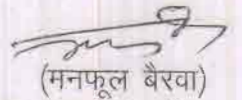 (मनफूल बैरवा)